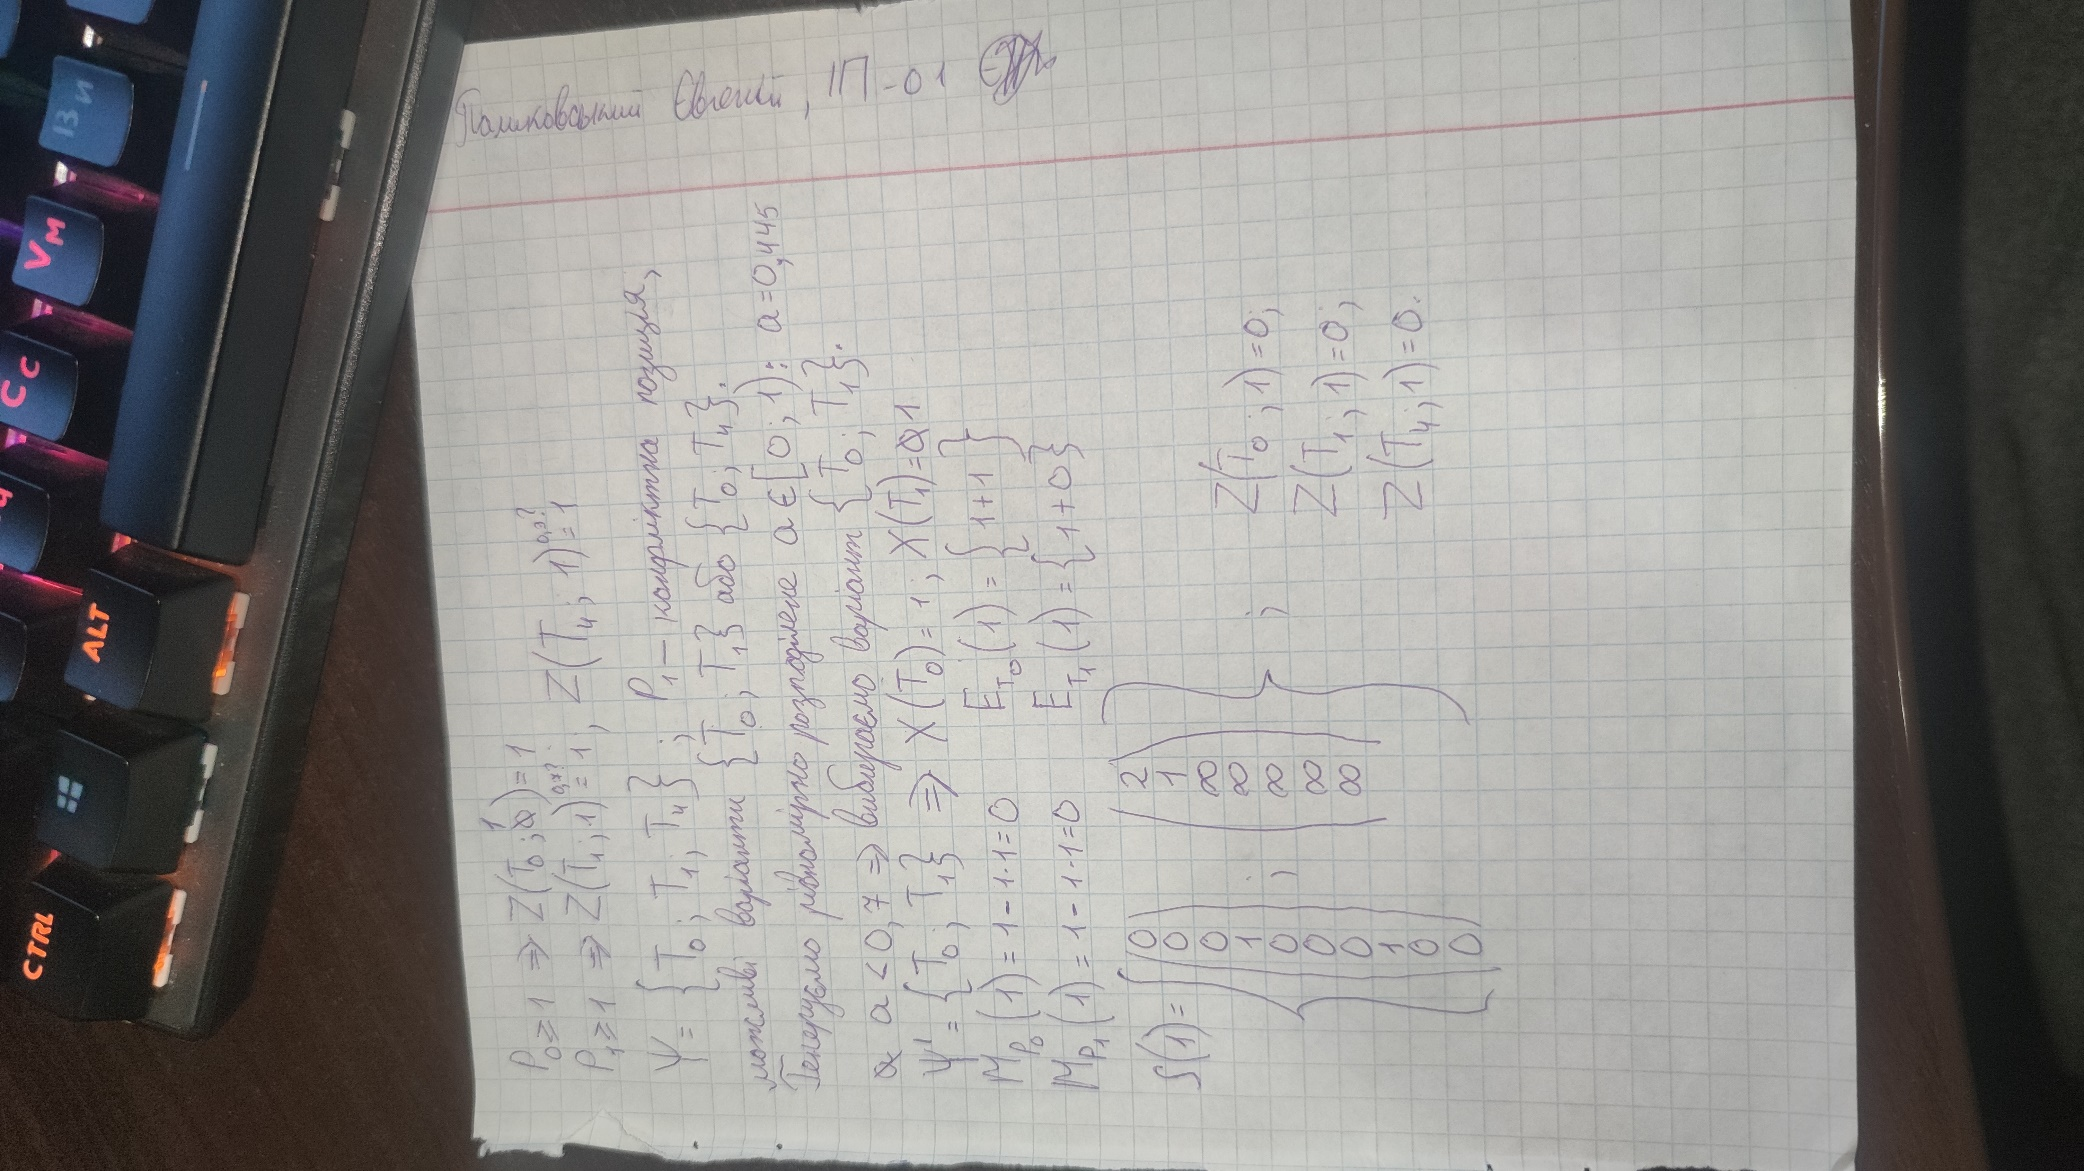 Євгеній, ІП-01
P₀≥1 ⇒ Z(T₀; 1)=1
P₁≥1 ⇒ Z(T₁; 1)=1, Z(T₄; 1)=1
0,7? 0,3?
Ψ = {T₀; T₁; T₄}; P₁ – конфліктна позиція,
можливі варіанти {T₀; T₁} або {T₀; T₄}.
Генеруємо рівномірно розподілене a∈[0; 1): a=0,445
a<0,7 ⇒ вибираємо варіант {T₀; T₁}.
Ψ' = {T₀; T₁} ⇒ X(T₀)=1; X(T₁)=1
M_P₀(1)=1-1·1=0 E_T₀(1)={1+1}
M_P₁(1)=1-1·1=0 E_T₁(1)={1+0}
S(1)=
{
(0
0
0
1
0
0
0
1
0
0)
;
(2
1
∞
∞
∞
∞
∞)
}
;
Z(T₀; 1)=0;
Z(T₁; 1)=0;
Z(T₄; 1)=0.
CTRL
ALT
Cc
Vм
Ви